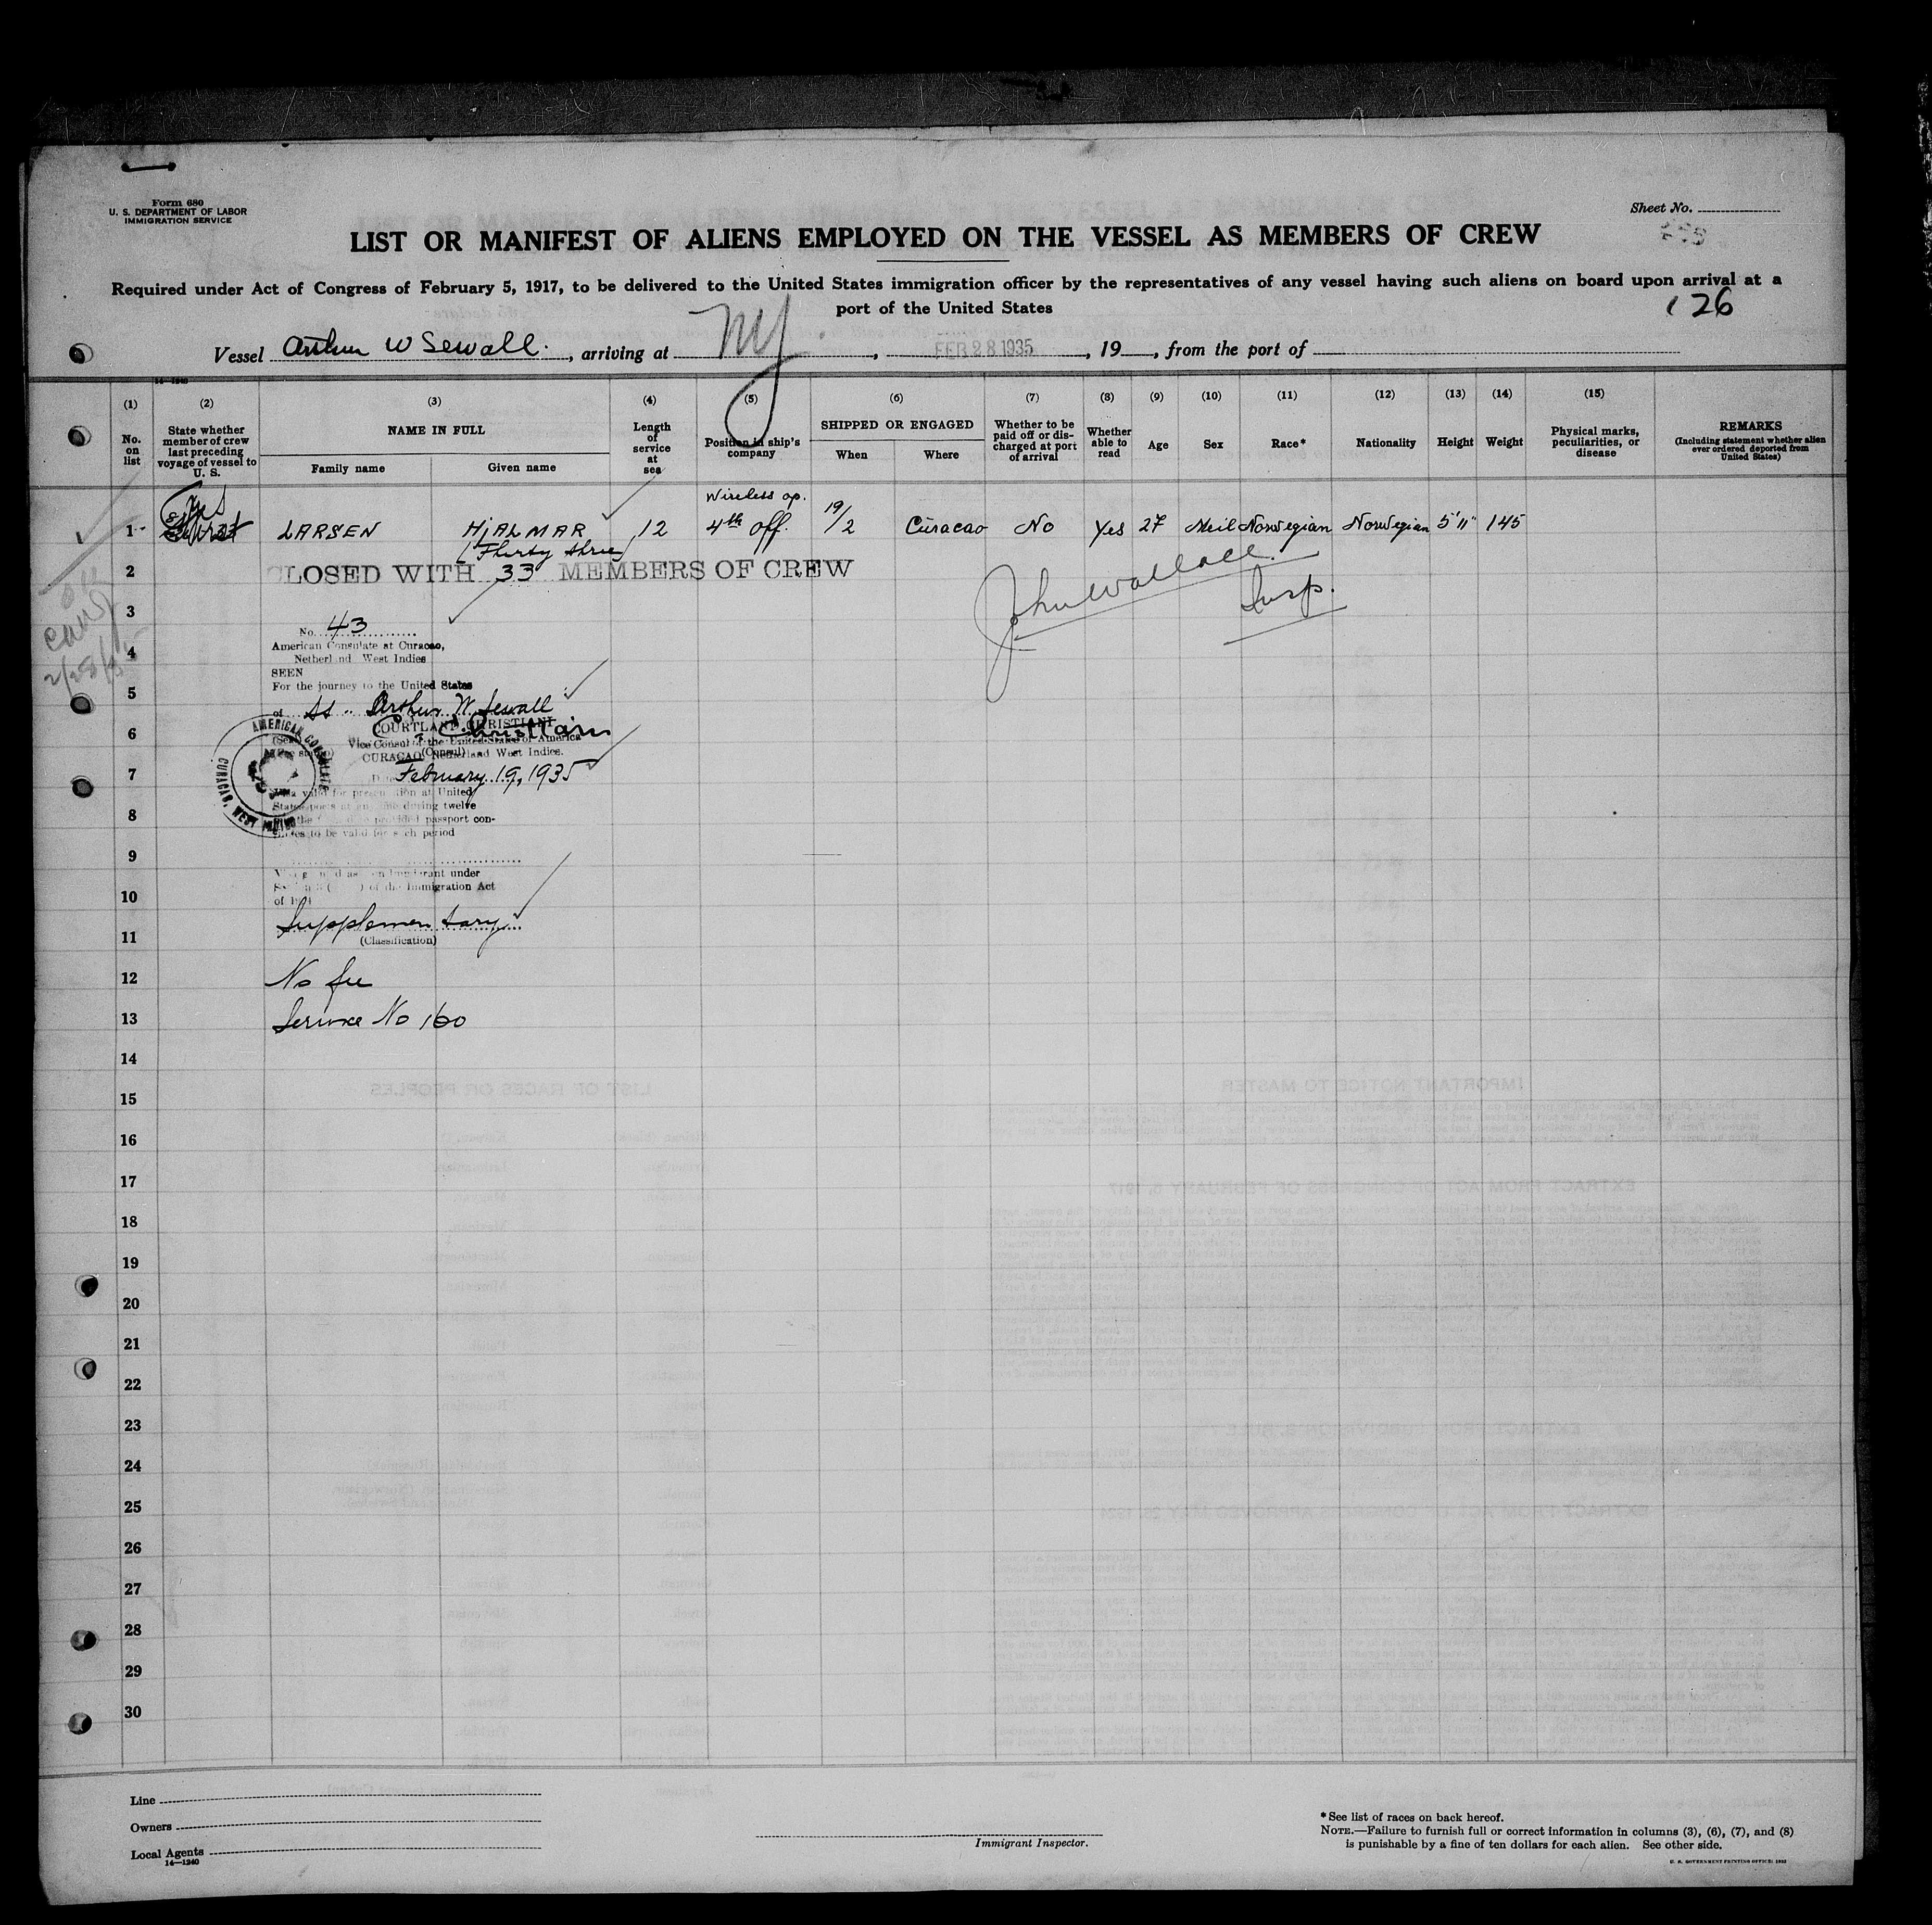 Form 680
U. S. DEPARTMENT OF LABOR
IMMIGRATION SERVICE
Sheet No.
LIST OR MANIFEST OF ALIENS EMPLOYED ON THE VESSEL AS MEMBERS OF CREW
Required under Act of Congress of February 5, 1917, to be delivered to the United States immigration officer by the representatives of any vessel having such aliens on board upon arrival at a
port of the United States
126
Vessel Arthur W Sewall., arriving at NY., FEB 28 1935, 19, from the port of
14—1240
(1) (2) (3) (4) (5) (6) (7) (8) (9) (10) (11) (12) (13) (14) (15)
No. on list
State whether member of crew last preceding voyage of vessel to U. S.
NAME IN FULL
Family name Given name
Length of service at sea
Position in ship's company
SHIPPED OR ENGAGED
When Where
Whether to be paid off or discharged at port of arrival
Whether able to read
Age
Sex
Race*
Nationality
Height
Weight
Physical marks, peculiarities, or disease
REMARKS
(Including statement whether alien ever ordered deported from United States)
Wireless op.
1 yes LARSEN HjALMAR 12 4th off. 19/2 Curacao No Yes 27 Norwegian Norwegian 5'11" 145
(Thirty three)
2 CLOSED WITH 33 MEMBERS OF CREW
John Wallace.
Insp.
3
No. 43
American Consulate at Curacao,
4
Netherland West Indies
SEEN
For the journey to the United States
5
of SS. Arthur W. Sewall
COURTLAND CHRISTIANI
6
C. Christiani
Vice Consul of the United States of America
(Consul)
CURACAO, Netherland West Indies.
AMERICAN CONSULATE
CURACAO, WEST INDIES
7
Date February 19, 1935
2/28/35
Visa valid for presentation at United
States ports at any time during twelve
8
passport con-
to be valid for such period
9
under
of the Immigration Act
10
of 1924
Supplementary
11
(Classification)
12
No fee
13
Service No 160
14
15
16
17
18
19
20
21
22
23
24
25
26
27
28
29
30
Line
Owners
Local Agents
14—1240
Immigrant Inspector.
*See list of races on back hereof.
NOTE.—Failure to furnish full or correct information in columns (3), (6), (7), and (8)
is punishable by a fine of ten dollars for each alien. See other side.
U. S. GOVERNMENT PRINTING OFFICE: 1932